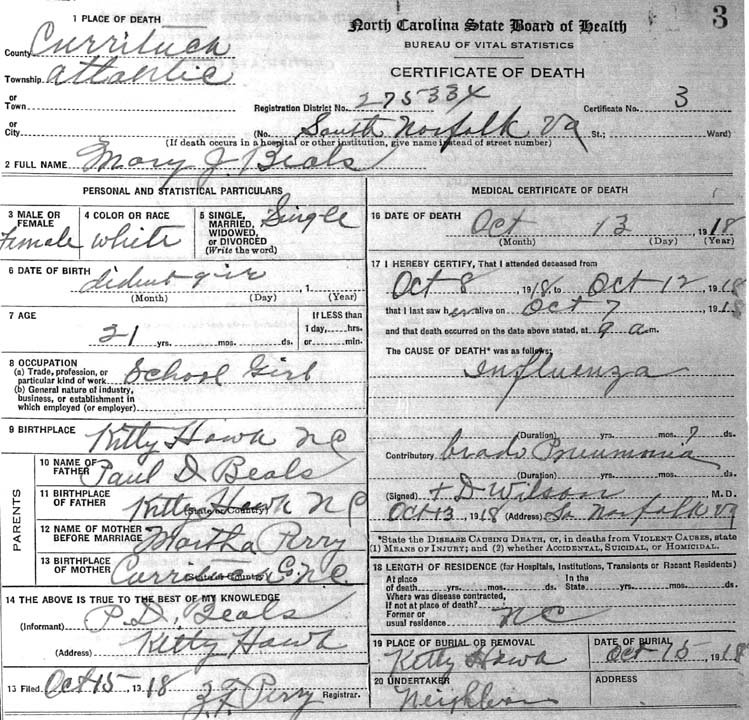 3
1 PLACE OF DEATH
North Carolina State Board of Health
BUREAU OF VITAL STATISTICS
CERTIFICATE OF DEATH
County Currituck
Township Atlantic
or Town
or City
Registration District No. 275334 Certificate No. 3
(No. South Norfolk Va St.; Ward)
(If death occurs in a hospital or other institution, give name instead of street number)
2 FULL NAME Mary J. Beals
PERSONAL AND STATISTICAL PARTICULARS
3 MALE OR FEMALE Female
4 COLOR OR RACE white
5 SINGLE, MARRIED, WIDOWED, or DIVORCED (Write the word) Single
6 DATE OF BIRTH dident giv , 1
(Month) (Day) (Year)
7 AGE 21 yrs. mos. ds.
If LESS than 1 day, hrs. or min.
8 OCCUPATION
(a) Trade, profession, or particular kind of work School Girl
(b) General nature of industry, business, or establishment in which employed (or employer)
9 BIRTHPLACE Kitty Hawk NC
PARENTS
10 NAME OF FATHER Paul D Beals
11 BIRTHPLACE OF FATHER (State or Country) Kitty Hawk NC
12 NAME OF MOTHER BEFORE MARRIAGE Martha Perry
13 BIRTHPLACE OF MOTHER (State or Country) Currituck C. N.C.
14 THE ABOVE IS TRUE TO THE BEST OF MY KNOWLEDGE
(Informant) P. D. Beals
(Address) Kitty Hawk
13 Filed Oct 15, 1918 Z F Perry Registrar.
MEDICAL CERTIFICATE OF DEATH
16 DATE OF DEATH Oct 13 , 1918
(Month) (Day) (Year)
17 I HEREBY CERTIFY, That I attended deceased from
Oct 8 1918, to Oct 12 1918
that I last saw her alive on Oct 7, 1918
and that death occurred on the date above stated, at 9 a.m.
The CAUSE OF DEATH* was as follows:
Influenza
(Duration) yrs. mos. 7 ds.
Contributory Pneumonia
(Duration) yrs. mos. ds.
(Signed) D Wilson M. D.
Oct 13, 1918 (Address) So Norfolk Va
*State the DISEASE CAUSING DEATH, or, in deaths from VIOLENT CAUSES, state
(1) MEANS OF INJURY; and (2) whether ACCIDENTAL, SUICIDAL, or HOMICIDAL.
18 LENGTH OF RESIDENCE (for Hospitals, Institutions, Transients or Recent Residents)
At place of death yrs. mos. ds. In the State yrs. mos. ds.
Where was disease contracted, If not at place of death?
Former or usual residence NC
19 PLACE OF BURIAL OR REMOVAL Kitty Hawk
DATE OF BURIAL Oct 15, 1918
20 UNDERTAKER Neighbors
ADDRESS